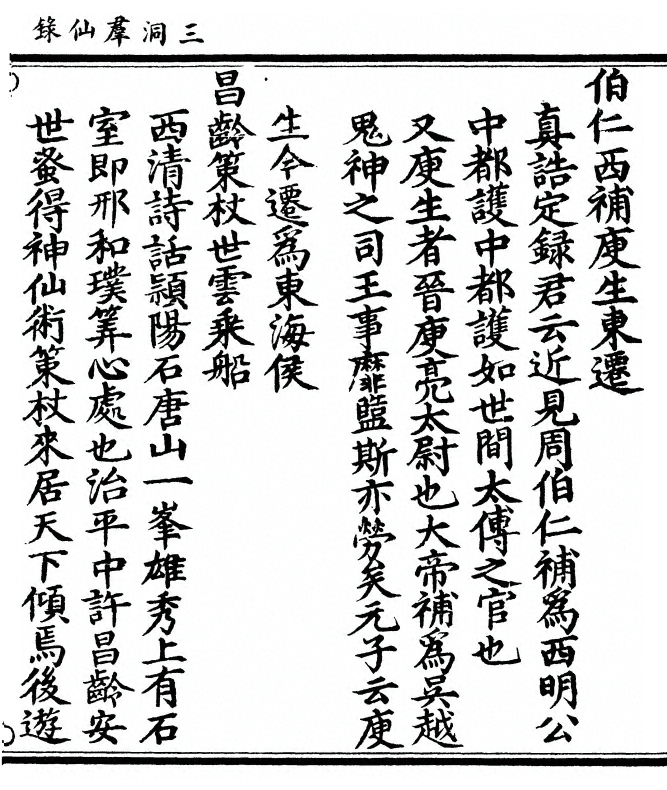 三洞羣仙錄
伯仁西補庾生東遷
真誥定録君云近見周伯仁補爲西明公
中都護中都護如世間太傅之官也
又庾生者晉庾亮太尉也大帝補爲吳越
鬼神之司王事靡盬斯亦勞矣元子云庾
生今遷爲東海侯
昌齡策杖世雲乘船
西清詩話潁陽石唐山一峯雄秀上有石
室即邢和璞筭心處也治平中許昌齡安
世蚤得神仙術策杖來居天下傾焉後遊